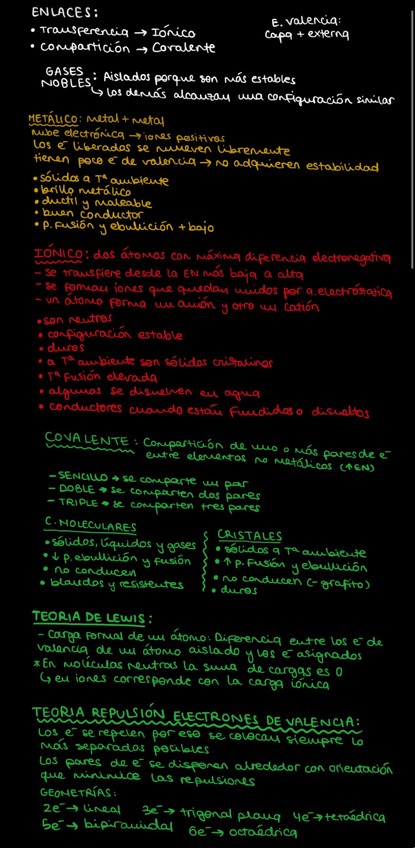 ENLACES:
• Transferencia → Iónico
• compartición → Covalente
E. valencia:
capa + externa
GASES NOBLES: Aislados porque son más estables
↳ los demás alcanzan una configuración similar
METÁLICO: metal + metal
nube electrónica → iones positivos
Los e⁻ liberados se mueven libremente
tienen poco e⁻ de valencia → no adquieren estabilidad
• sólidos a Tª ambiente
• brillo metálico
• ductil y maleable
• buen conductor
• p. fusión y ebullición + bajo
IÓNICO: dos átomos con máxima diferencia electronegativa
- se transfiere desde la EN más baja a alta
- se forman iones que quedan unidos por a. electrostática
- un átomo forma un anión y otro un catión
• son neutros
• configuración estable
• duros
• a Tª ambiente son sólidos cristalinos
• Tª fusión elevada
• algunos se disuelven en agua
• conductores cuando están fundidos o disueltos
COVALENTE: Compartición de uno o más pares de e⁻
entre elementos no metálicos (↑EN)
- SENCILLO → se comparte un par
- DOBLE → se comparten dos pares
- TRIPLE → se comparten tres pares
C. MOLECULARES
• sólidos, líquidos y gases
• ↓ p. ebullición y fusión
• no conducen
• blandos y resistentes
CRISTALES
• sólidos a Tª ambiente
• ↑ p. fusión y ebullición
• no conducen (- grafito)
• duros
TEORIA DE LEWIS:
- Carga formal de un átomo: Diferencia entre los e⁻ de
valencia de un átomo aislado y los e⁻ asignados
* En moléculas neutras la suma de cargas es 0
↳ en iones corresponde con la carga iónica
TEORÍA REPULSIÓN ELECTRONES DE VALENCIA:
Los e⁻ se repelen por eso se colocan siempre lo
más separados posibles
Los pares de e⁻ se disponen alrededor con orientación
que minimice las repulsiones
GEOMETRÍAS:
2e⁻ → lineal 3e⁻ → trigonal plana 4e⁻ → tetraédrica
5e⁻ → bipiramidal 6e⁻ → octaédrica